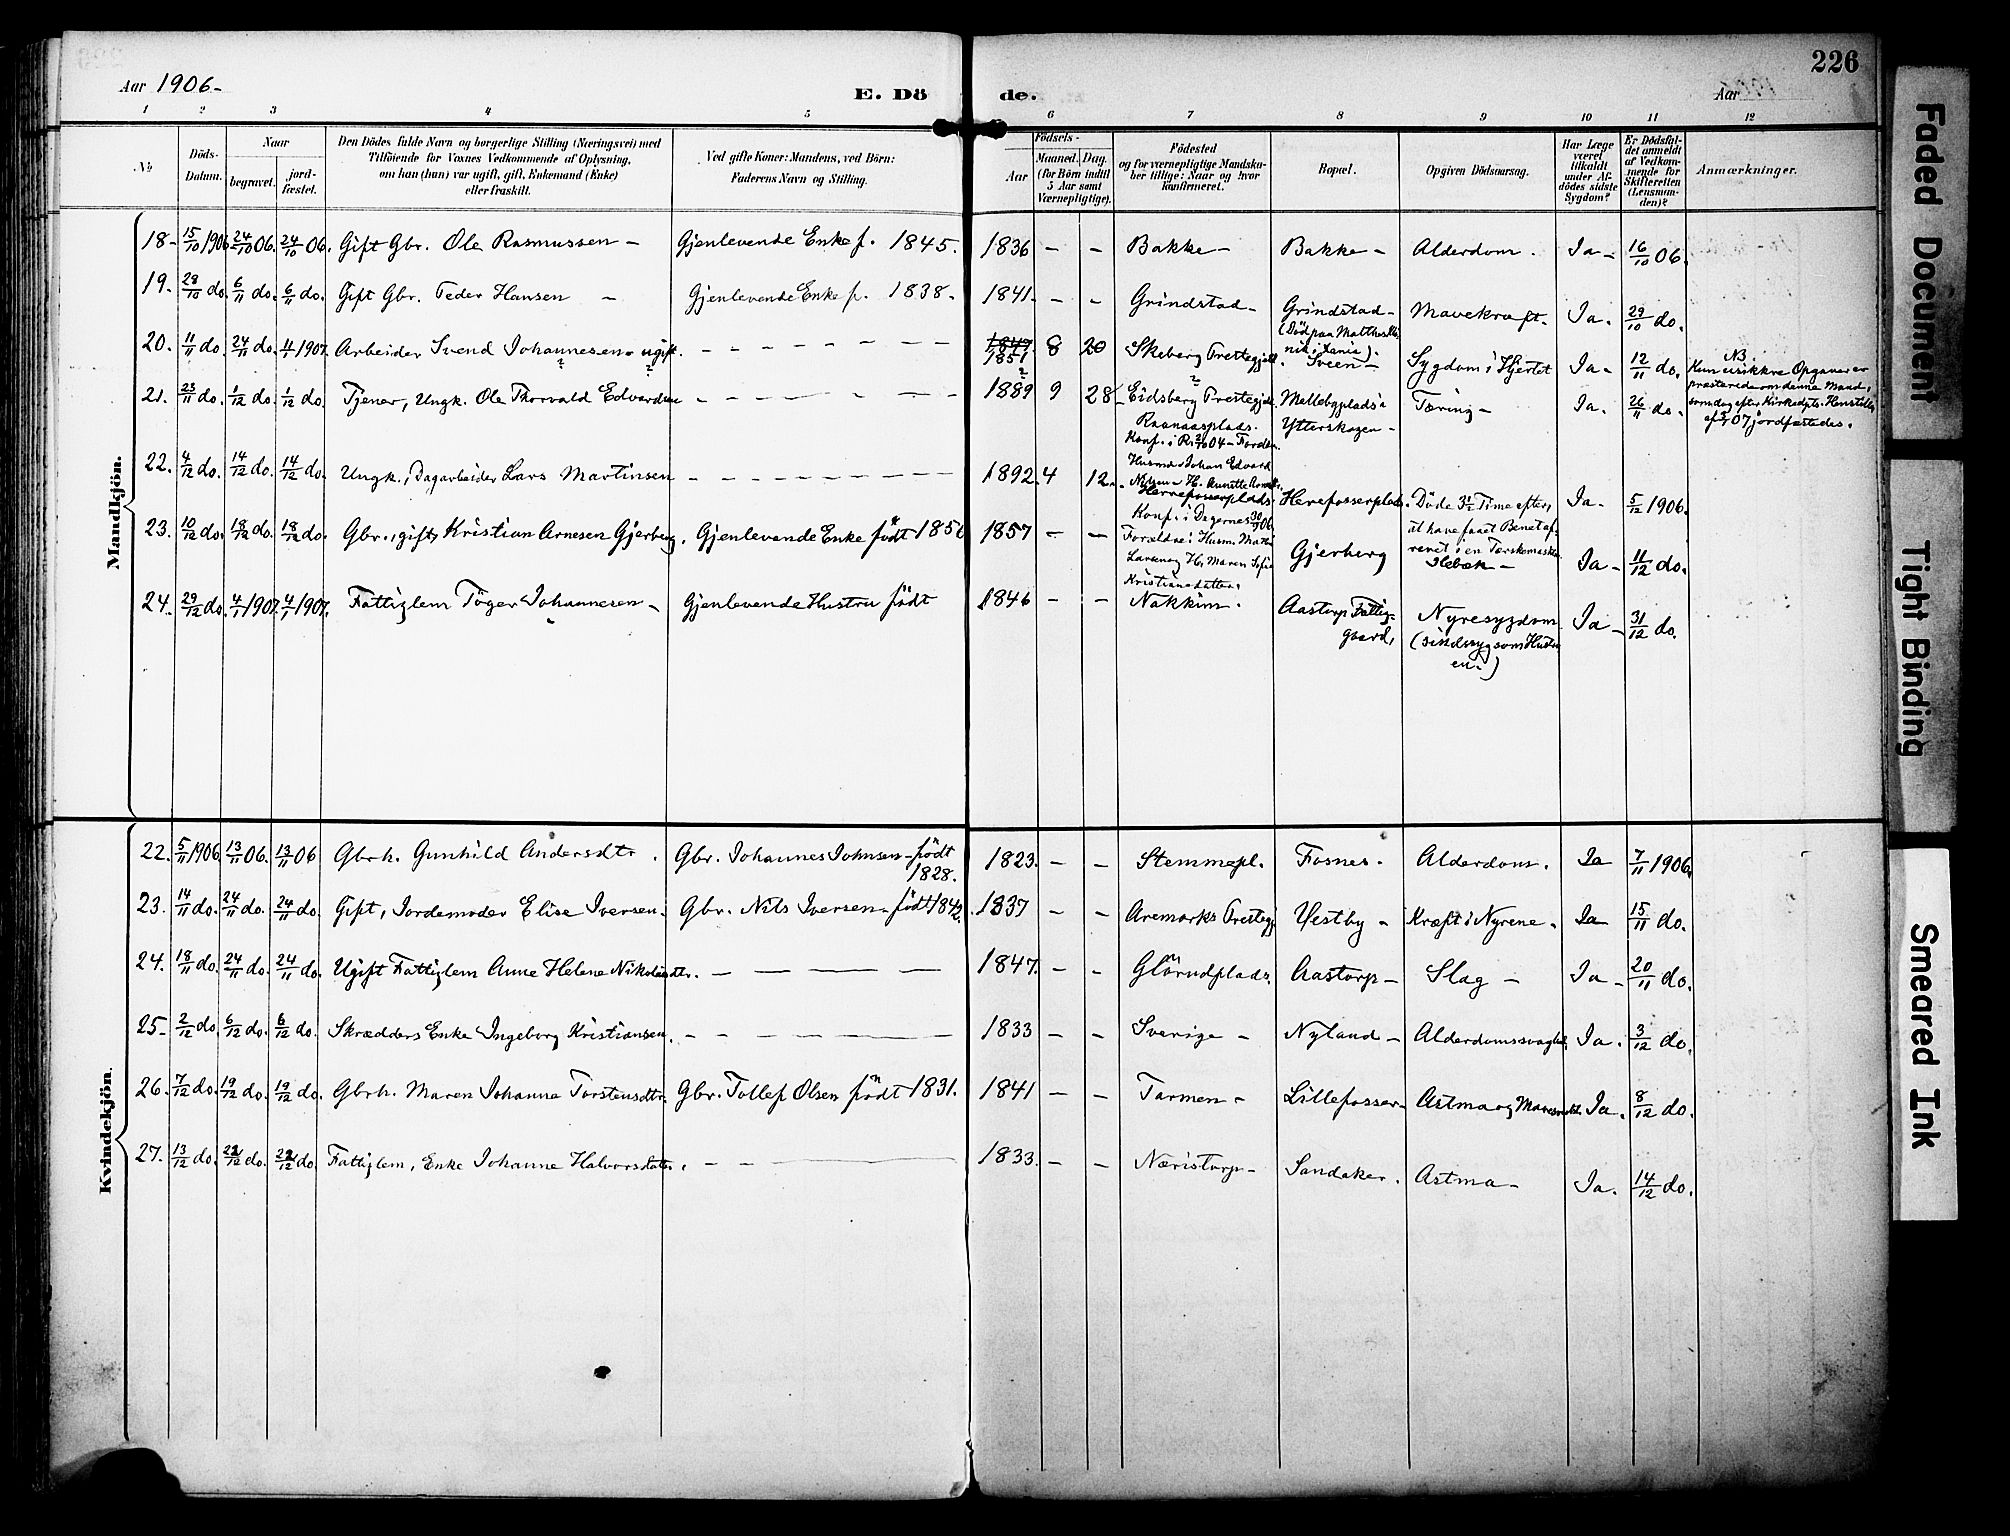 226
Aar 1906-
E. Döde.
Aar
1 2 3 4 5 6 7 8 9 10 11 12
No
Döds-Datum.
Naar
begravet.
jord-fæstet.
Den Dödes fulde Navn og borgerlige Stilling (Næringsvei) med
Tilföiende for Voxnes Vedkommende af Oplysning,
om han (hun) var ugift, gift, Enkemand (Enke)
eller fraskilt.
Ved gifte Koner: Mandens, ved Börn:
Faderens Navn og Stilling.
Födsels-
Aar
Maaned. Dag.
(for Börn indtil 5 Aar samt Værnepligtige).
Födested
og for værnepligtige Mandskaber tillige: Naar og hvor konfirmeret.
Bopæl.
Opgiven Dödsaarsag.
Har Læge været tilkaldt under Afdödes sidste Sygdom?
Er Dödsfaldet anmeldt af Vedkommende for Skifteretten (Lensmanden)?
Anmærkninger.
Mandkjön.
18- 15/10 1906 24/10 06. 24/10 06. Gift Gbr. Ole Rasmussen - Gjenlevende Enke f. 1845. 1836 - - Bakke - Bakke - Alderdom. Ja - 16/10 06.
19. 29/10 do. 6/11 do. 6/11 do. Gift Gbr. Peder Hansen - Gjenlevende Enke f. 1838. 1841. - - Grindstad - Grindstad - Mavekræft. Ja. 29/10 do.
20. 11/11 do. 24/11 do. 4/1 1907. Arbeider Svend Johannesen - ugift. 1849 1851 ? 8 20 Skeberg Prestegjeld. ? (Död paa Sveen - Sygdom i Hjertet Ja - 12/11 do. NB. Kun usikkre Opgaver er præsterede om denne Mand, jordfæstedes.
21. 23/11 do. 1/12 do. 1/12 do. Tjener, Ungk. Ole Thorvald Edvardsen 1889 9 28 Eidsberg Prestegjeld. Raanaasplads. Konf. i Mellebyplads i Ytterskogen - Tæring - Ja. 26/11 do.
Husmd. Johan Edvard
22. 4/12 do. 14/12 do. 14/12 do. Ungk., Dagarbeider Lars Martinsen 1892. 4 12. Herrefosserplads Konf. i Degernes Forældre: Husm. Maren Sofie Kristiansdatter. Herefosserplads. Døde 3½ Time efter, at have faaet Benet afrevet i en Tærskemaskine Ja. 5/12 1906.
23. 10/12 do. 18/12 do. 18/12 do. Gbr., gift, Kristian Arnesen Gjerberg. Gjenlevende Enke født 1856 1857 - - Gjerberg Slebæk - Ja - 11/12 do.
24. 29/12 do. 4/1 1907. 4/1 1907. Fattiglem Töger Johannesen - Gjenlevende Hustru født 1846 - - Nakkim. Aastorp Fattiggaard, Nyresygdom (sindssyg som Hustruen.) Ja - 31/12 do.
Kvindekjön.
22. 5/11 1906 13/11 06. 13/11 06 Gbrk. Gunhild Andersdtr. Gbr. Johannes Johnsen - født 1828. 1823. - - Stemmepl. Fosnes. Alderdom. Ja 7/11 1906.
23. 14/11 do. 24/11 do. 24/11 do. Gift, Jordemoder Elise Iversen. Gbr. Nils Iversen - født 1842. 1837 - - Aremarks Prestegj. Vestby - Kræft i Nyrene. Ja 15/11 do.
24. 18/11 do. 24/11 do. 24/11 do. Ugift Fattiglem Anne Helene Nikolaisdtr. - 1847. - - Glörudplads. Aastorp - Slag - Ja - 20/11 do.
25- 2/12 do. 6/12 do. 6/12 do. Skrædders Enke Ingeborg Kristiansen. - 1833 - - Sverige - Nyland - Alderdomssvaghed. Ja. 3/12 do.
26. 7/12 do. 19/12 do. 19/12 do. Gbrk. Maren Johanne Torstensdtr. Gbr. Tollef Olsen født 1831. 1841 - - Tarmen - Lillefosser - Astma og Ja. 8/12 do.
27. 13/12 do. 22/12 do. 22/12 do. Fattiglem, Enke Johanne Halvorsdatter. - 1833. - - Næristorp - Sandaker. Astma - Ja. 14/12 do.
Faded Document
Tight Binding
Smeared Ink